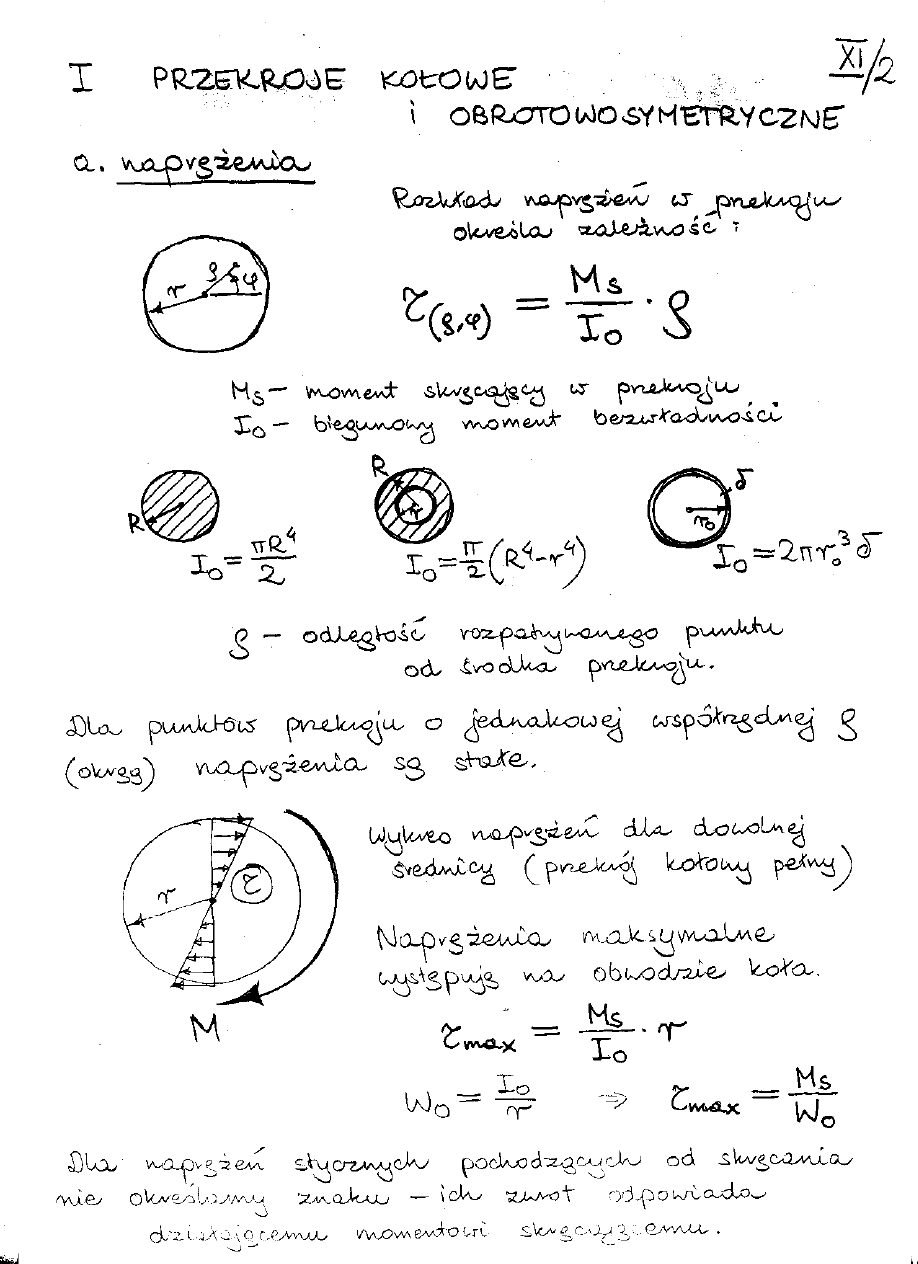 XI/2
I PRZEKROJE KOŁOWE
i OBROTOWOSYMETRYCZNE
a. naprężenia
Rozkład naprężeń w przekroju
określa zależność:
r ρ φ
τ(ρ,φ) = Ms/Io · ρ
Ms – moment skręcający w przekroju
Io – biegunowy moment bezwładności
R
R r
δ ro
Io = πR⁴/2
Io = π/2 (R⁴-r⁴)
Io = 2πro³δ
ρ – odległość rozpatrywanego punktu
od środka przekroju.
Dla punktów przekroju o jednakowej współrzędnej ρ
(okrąg) naprężenia są stałe.
Wykres naprężeń dla dowolnej
średnicy (przekrój kołowy pełny)
r τ
M
Naprężenia maksymalne
występują na obwodzie koła.
τmax = Ms/Io · r
Wo = Io/r ⇒ τmax = Ms/Wo
Dla naprężeń stycznych pochodzących od skręcania
nie określamy znaku – ich zwrot odpowiada
działającemu momentowi skręcającemu.